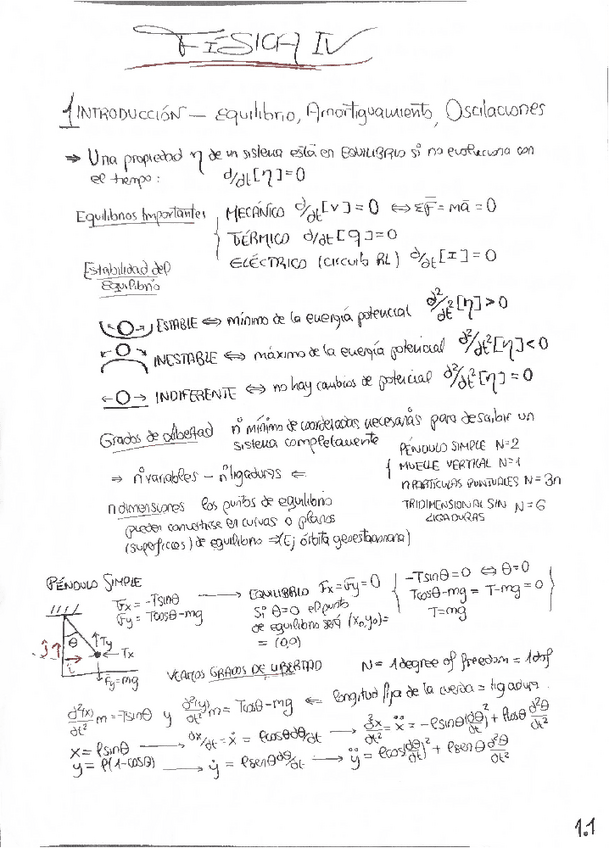 FÍSICA IV
1 INTRODUCCIÓN — Equilibrio, Amortiguamiento, Oscilaciones
⇒ Una propiedad η de un sistema está en EQUILIBRIO si no evoluciona con
el tiempo: d/dt[η]=0
Equilibrios Importantes
MECÁNICO d/dt[v]=0 ⇔ ΣF̄=mā=0
TÉRMICO d/dt[q]=0
ELÉCTRICO (circuito RL) d/dt[I]=0
Estabilidad del
Equilibrio
ESTABLE ⇔ mínimo de la energía potencial d²/dt²[η]>0
INESTABLE ⇔ máximo de la energía potencial d²/dt²[η]<0
INDIFERENTE ⇔ no hay cambios de potencial d²/dt²[η]=0
Grados de Libertad nº mínimo de coordenadas necesarias para describir un
sistema completamente
⇒ nº variables – nº ligaduras ⇐
PÉNDULO SIMPLE N=2
MUELLE VERTICAL N=1
n PARTÍCULAS PUNTUALES N=3n
TRIDIMENSIONAL SIN N=6
LIGADURAS
n dimensiones los puntos de equilibrio
pueden convertirse en curvas o planos
(superficies) de equilibrio ⇒ (Ej órbita geoestacionaria)
PÉNDULO SIMPLE
Fx=-Tsinθ
Fy=Tcosθ-mg
→ EQUILIBRIO Fx=Fy=0
Si θ=0 el punto
de equilibrio será (x₀,y₀)=
=(0,0)
-Tsinθ=0 ⇔ θ=0
Tcosθ-mg=T-mg=0
T=mg
θ
Ty
Tx
Fy=mg
VEAMOS GRADOS DE LIBERTAD N=1 degree of freedom=1dof
d²(x)/dt² m=-Tsinθ y d²(y)/dt² m=Tcosθ-mg ⇐ longitud fija de la cuerda=ligadura.
x=ℓsinθ → dx/dt=ẋ=ℓcosθdθ/dt → d²x/dt²=ẍ=-ℓsinθ(dθ/dt)²+ℓcosθ d²θ/dt²
y=ℓ(1-cosθ) → ẏ=ℓsenθdθ/dt → ÿ=ℓcos(dθ/dt)²+ℓsenθ d²θ/dt²
1.1